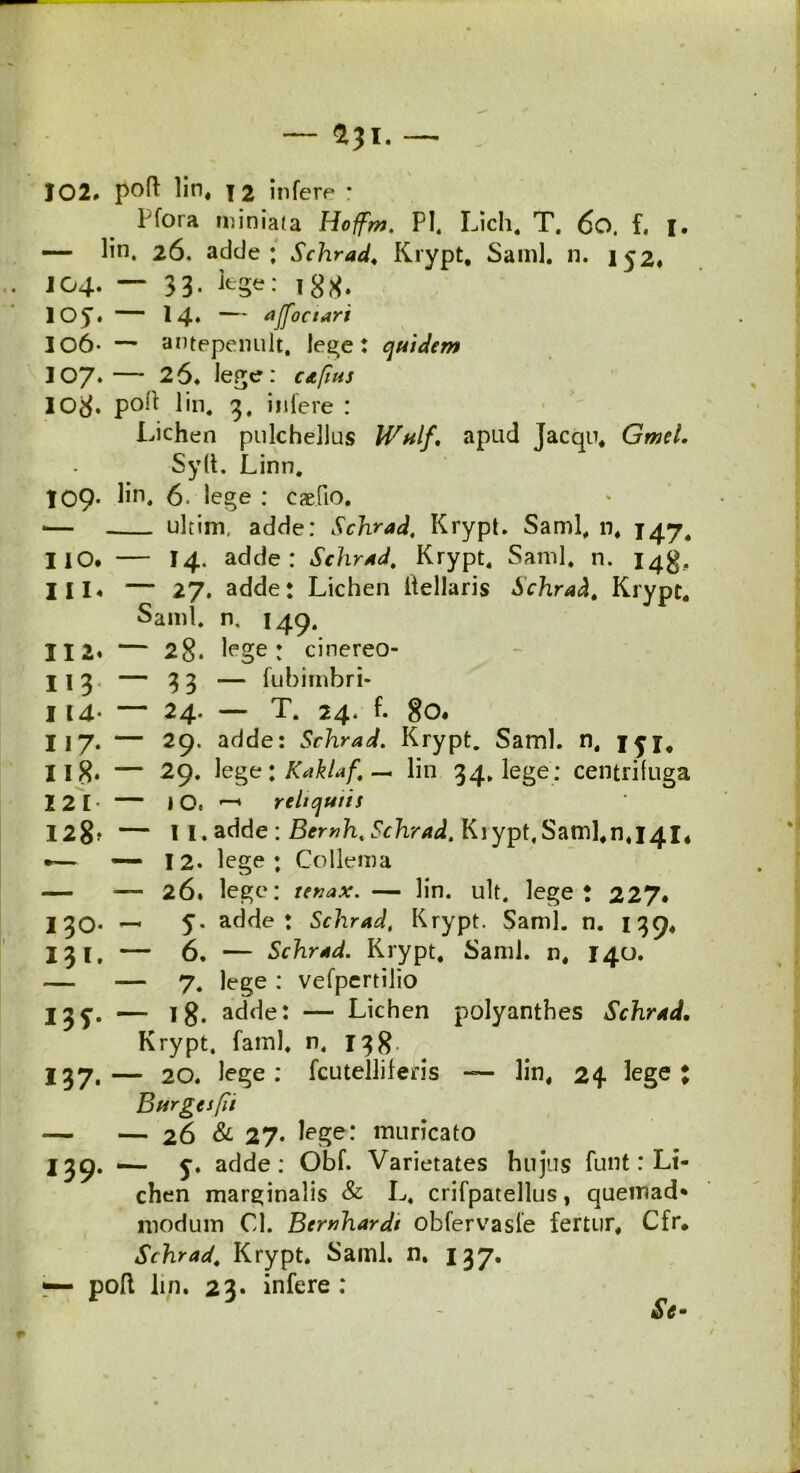 — 231. —
102. poſt lin. 12 inſere :
Pſora miniata Hoffm. Pl. Lich. T. 60. f. 1.
— lin. 26. adde ; Schrad. Krypt. Saml. n. 152.
104. — 33. lege: 188.
105. — 14. — aſſociari
106. — antepenult. lege : quidem
107. — 26. lege: cæſius
108. poſt lin. 3. inſere :
Lichen pulchellus Wulf. apud Jacqu. Gmel.
Syſt. Linn.
109. lin. 6. lege : cæſio.
— — ultim. adde: Schrad. Krypt. Saml. n. 147.
110. — 14. adde : Schrad. Krypt. Saml. n. 148.
111. — 27. adde: Lichen ſtellaris Schrad. Krypt.
Saml. n. 149.
112. — 28. lege : cinereo-
113 — 33 — ſubimbri-
114. — 24. — T. 24. f. 80.
117. — 29. adde: Schrad. Krypt. Saml. n. 151.
118. — 29. lege : Kaklaf. — lin 34. lege: centrifuga
121 — 10. — reliquiis
128. — 11. adde : Bernh. Schrad. Krypt. Saml. n. 141.
— — 12. lege ; Collema
— — 26. lege: tenax. — lin. ult. lege : 227.
130. — 5. adde : Schrad. Krypt. Saml. n. 139.
131. — 6. — Schrad. Krypt. Saml. n. 140.
— — 7. lege : veſpertilio
135. — 18. adde: — Lichen polyanthes Schrad.
Krypt. ſaml. n. 138
137. — 20. lege : ſcutelliferis — lin. 24 lege ;
Burgesſii
— — 26 & 27. lege: muricato
139. — 5. adde : Obſ. Varietates hujus ſunt : Li-
chen marginalis & L. criſpatellus, quemad-
modum Cl. Bernhardi obſervasſe fertur. Cfr.
Schrad. Krypt. Saml. n. 137.
— poſt lin. 23. inſere :
Se-